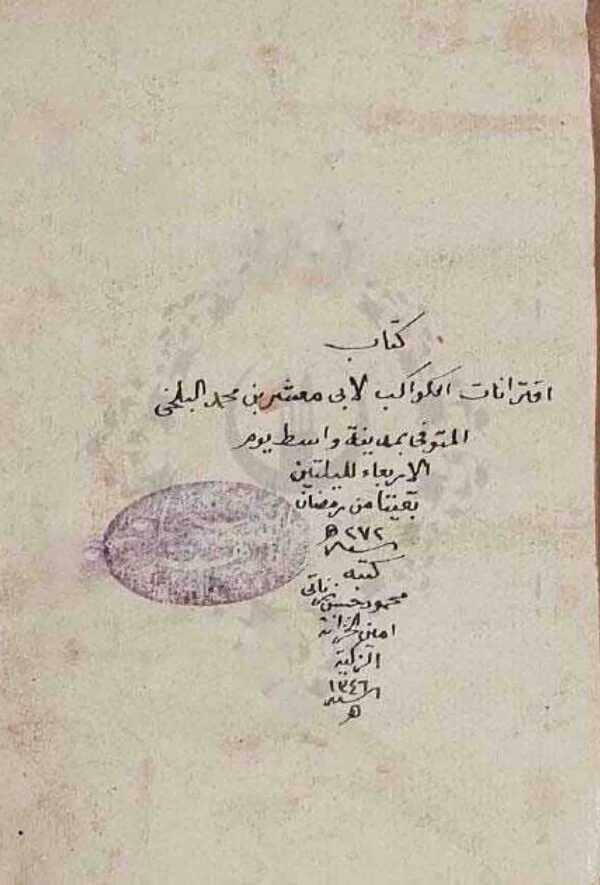 كتاب
اقترانات الكواكب لابى معشر بن محمد البلخى
المتوفى بمدينة واسط يوم
الاربعاء لليلتين
بقيتا من رمضان
سنة ٢٧٢ ه
كتبه
محمود حسن زناتى
امين الخزانة
الزكية
سنة ١٣٤٦
ه